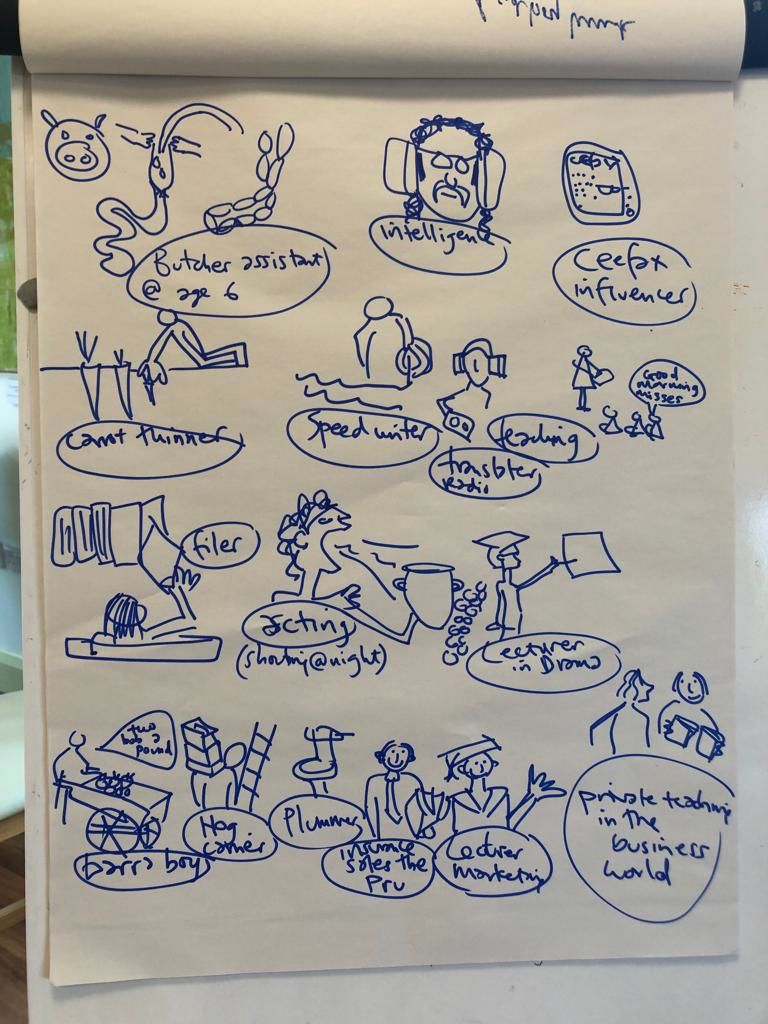 Butcher assistant
@ age 6
intelligence
ceefax
Ceefax
influencer
carrot thinner
Speed writer
teaching
translator
radio
Good
morning
misses
filer
acting
(shouting@night)
Lecturer
in Drama
two
bob a
pound
barra boy
Hog
carrier
Plummer
insurance
sales the
Pru
Lecturer
marketing
private teaching
in the
business
world